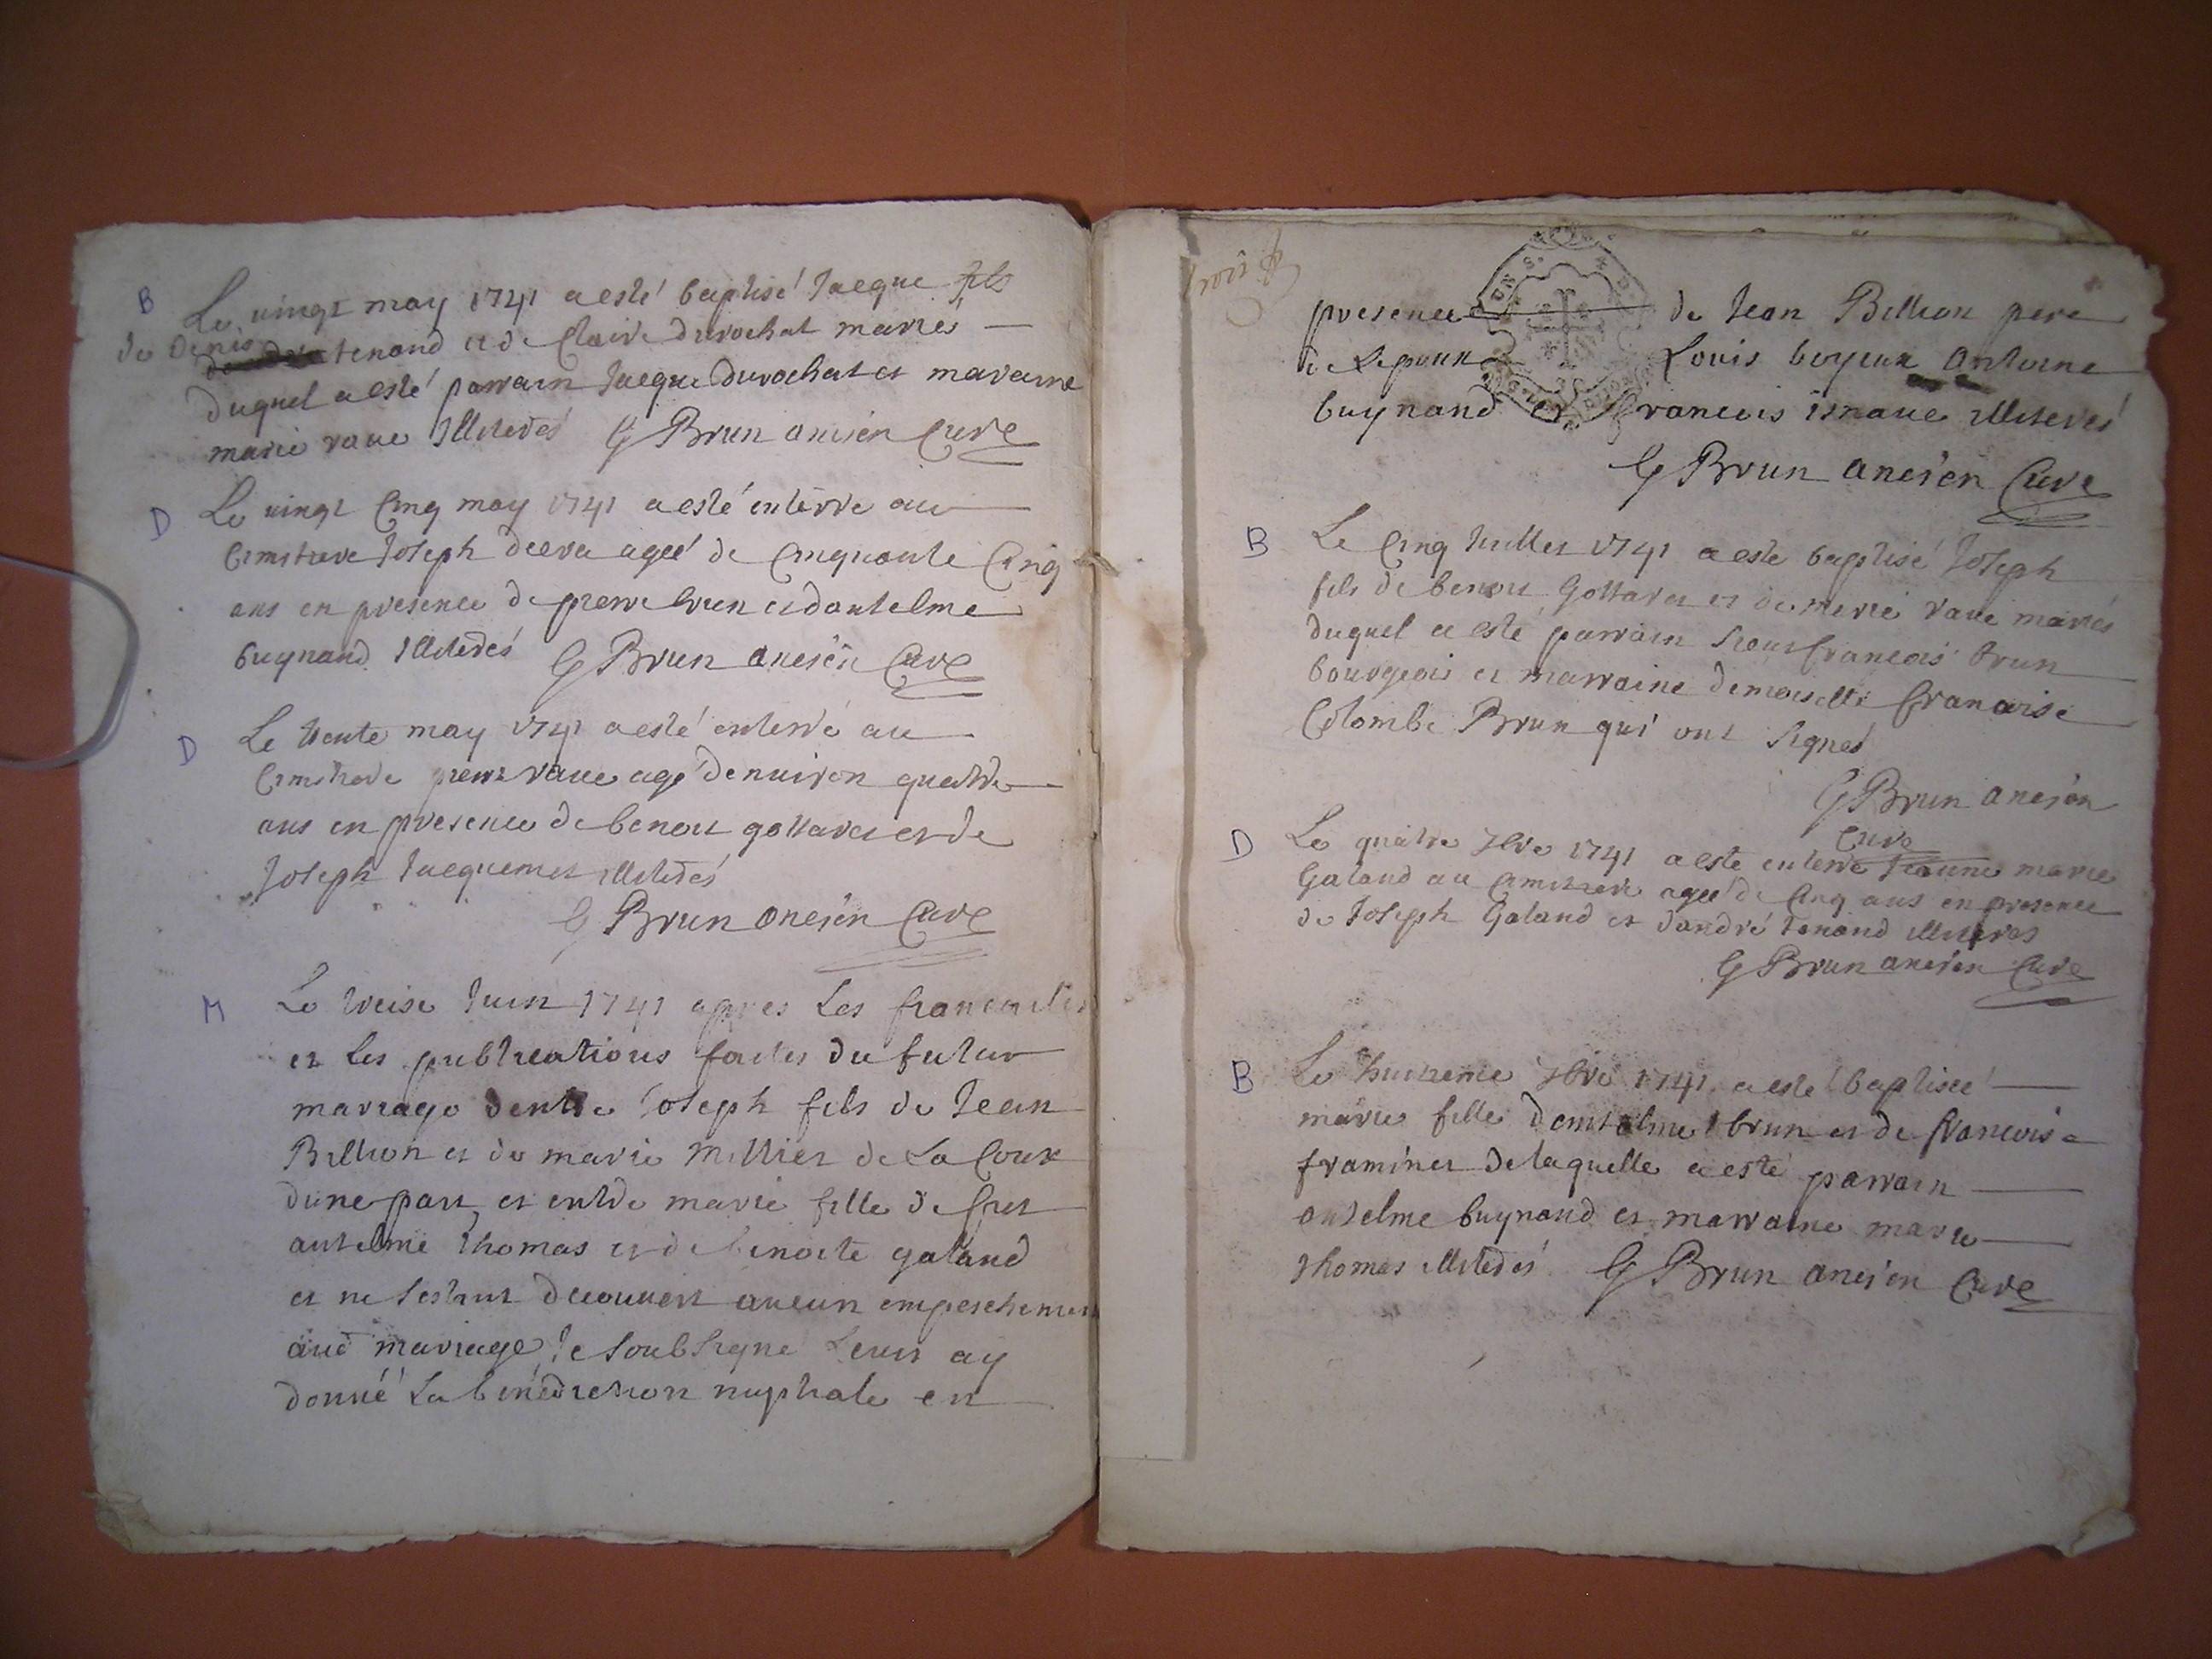 B Le vingt may 1741 a esté baptisé Jacque fils
de Denis tenand et de Claire durochat mariés
duquel a esté parrain Jacque durochat et maraine
marie rave Illiterés G Brun ancien Curé
D Le vingt Cinq may 1741 a esté enterré au
Cimitiere Joseph agée de Cinquante Cinq
ans en presence de pierre brun et dantelme
buynand Illiterés G Brun ancien Curé
D Le trente may 1741 a esté enterré au
Cimitiere pierre rave agé denviron quattre
ans en presence de benoit gottaret et de
Joseph Jacquemet illiterés
G Brun ancien Curé
M Le treise Juin 1741 apres Les fiancailles
et les publications faites du futur
mariage dentre Joseph fils de Jean
Billion et de marie Milliet de La Coux
dune part, et entre marie fille de
antelme thomas et de benoite galand
et ne sestant decouvert aucun empeschement
aud mariage Je soubsigné Leurs ay
donné La bénédiction nuptiale en
presence de Jean Billion pere
de Lepoux Louis boyeux antoine
buynand et francois illiterés
G Brun ancien Curé
B Le Cinq Juillet 1741 a esté baptisé Joseph
fils de benoit Gottaret et de marie rave mariés
duquel a esté parrain Sieur francois Brun
bourgeois et marraine demoiselle francoise
Colombe Brun qui ont signés
G Brun ancien
Curé
D Le quatre 7bre 1741 a esté enterré Jeanne marie
Galand au Cimitiere agée de Cinq ans en presence
de Joseph Galand et dandré tenand illiterés
G Brun ancien Curé
B Le huitieme 7bre 1741 a esté baptisée
marie fille dantelme brun et de francoise
framinet de laquelle a esté parrain
antelme buynand et marraine marie
thomas illiterés G Brun ancien Curé